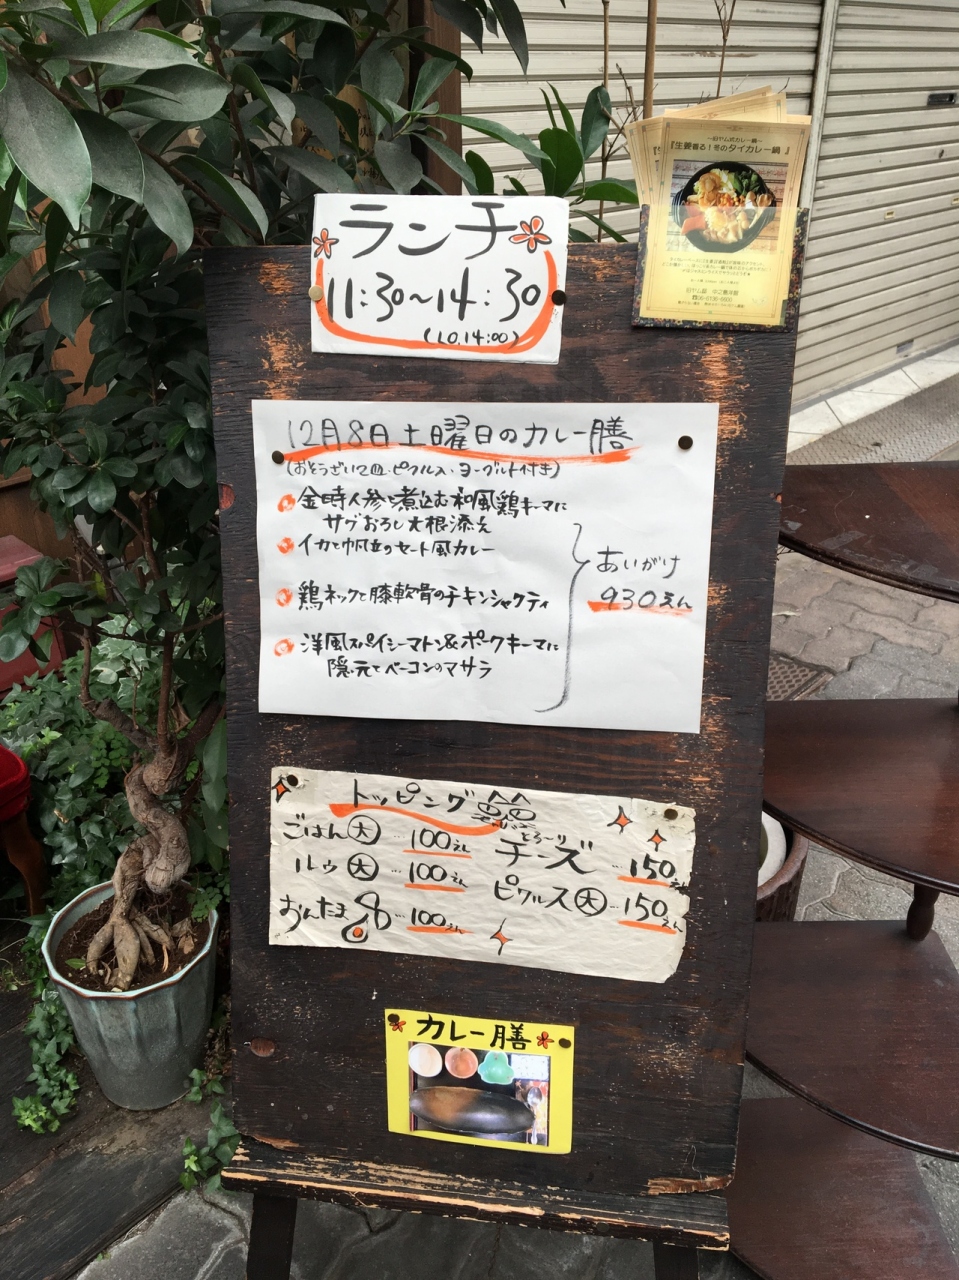 ランチ
11:30～14:30
(L.O.14:00)
～旧ヤム邸カレー鍋～
『生姜香る!冬のタイカレー鍋』
12月8日土曜日のカレー膳
(おそうざい2皿、ピクルス、ヨーグルト付き)
金時人参と煮込む和風鶏キーマに
サブおろし大根添え
イカと帆立のセート風カレー
鶏ネックと膝軟骨のチキンシャクティ
洋風スパイシーマトン&ポークキーマに
隠元とベーコンのマサラ
あいがけ
930えん
トッピング
ごはん大…100えん
ルゥ大…100えん
おんたま…100えん
とろ～り
チーズ…150えん
ピクルス大…150えん
カレー膳